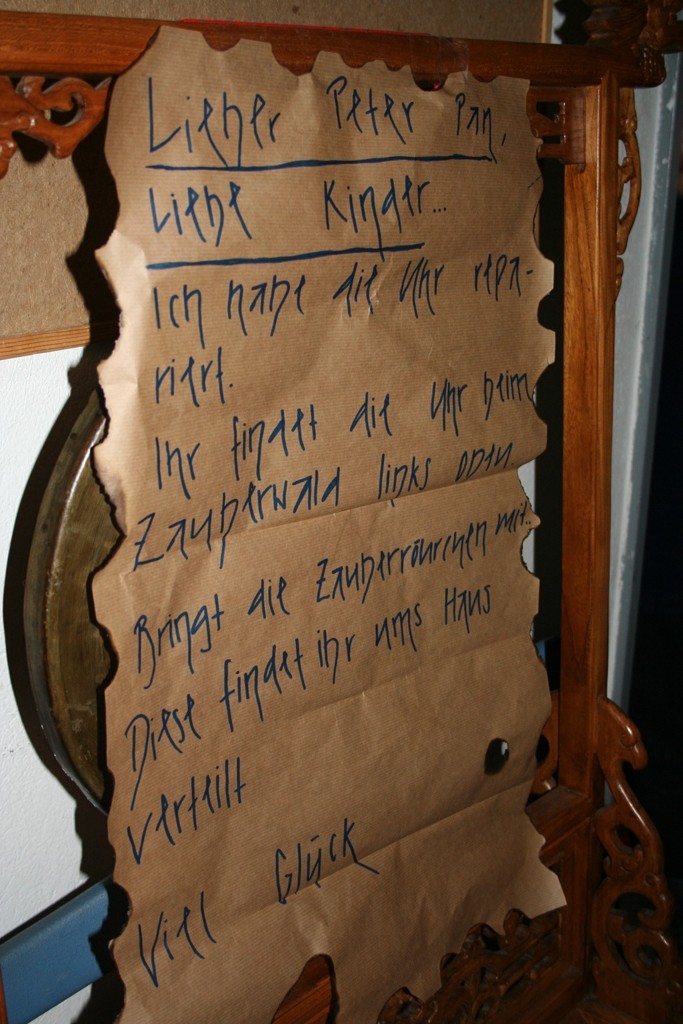 Lieber Peter Pan,
Liebe Kinder...
Ich habe die Uhr repa-
riert.
Ihr findet die Uhr beim
Zauberwald links oben
Bringt die Zauberröhrchen mit..
Diese findet ihr ums Haus
verteilt
Viel Glück